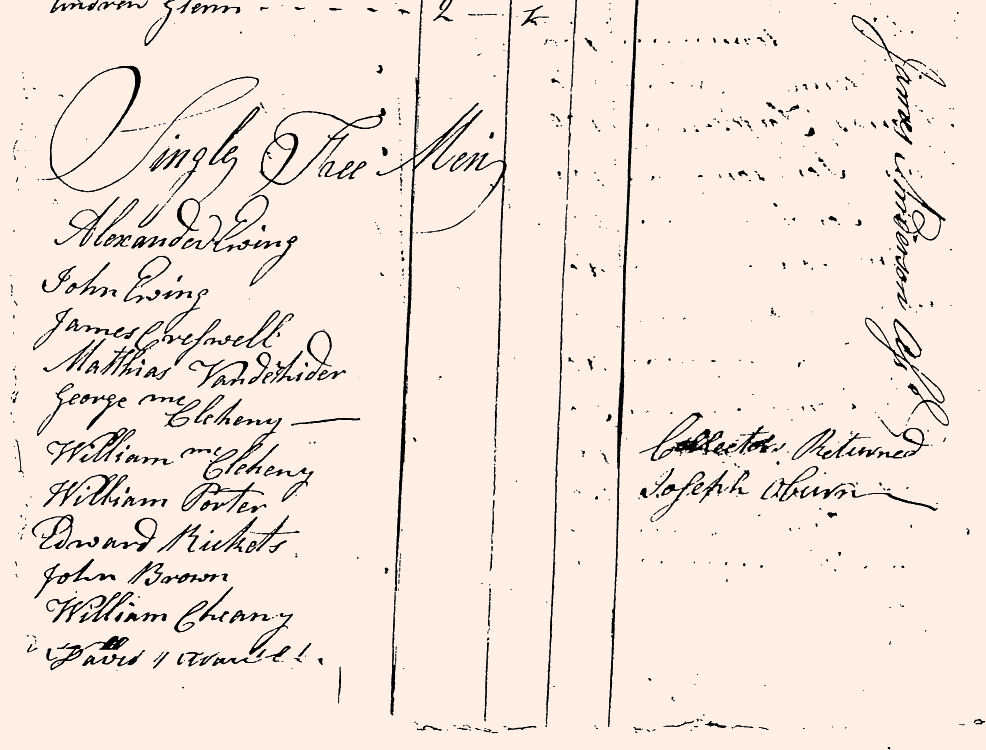 Andrew Glenn - - - - - - 2 —
Single Free Men
Alexander Ewing
John Ewing
James Creswell
Matthias Vandethider
George mc
Cleheny —
William mc Cleheny
William Porter
Edward Rickets
John Brown
William Cheany
David
Collectors Returned
Joseph Oburn
James Anderson Assr